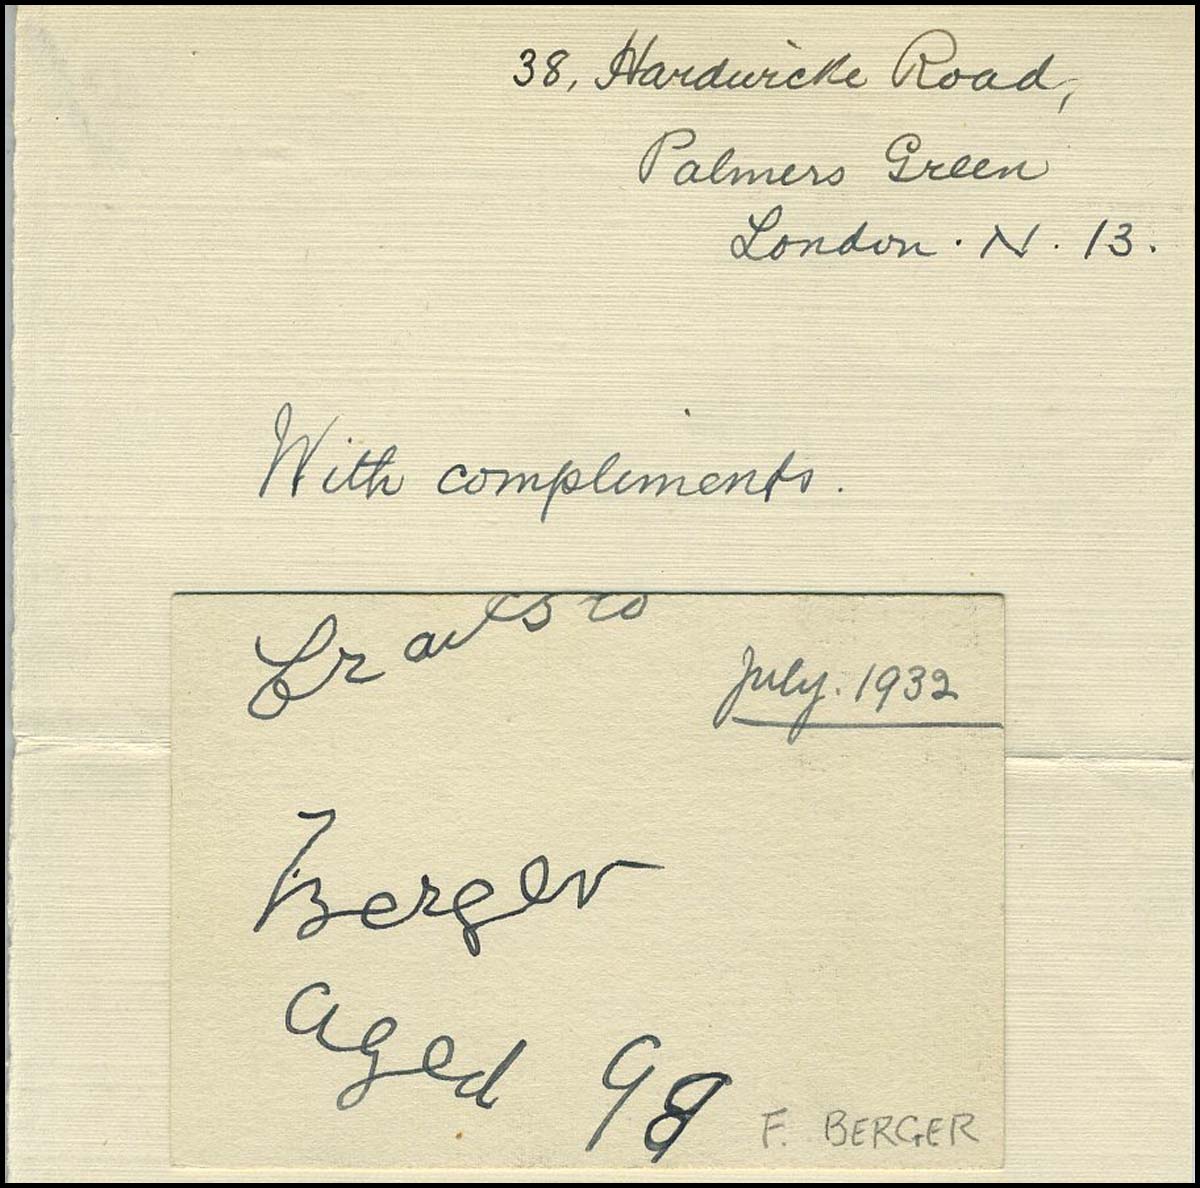 38, Hardwicke Road,
Palmers Green
London. N. 13.
With compliments.
Francesco
July. 1932
Berger
aged 98
F. BERGER